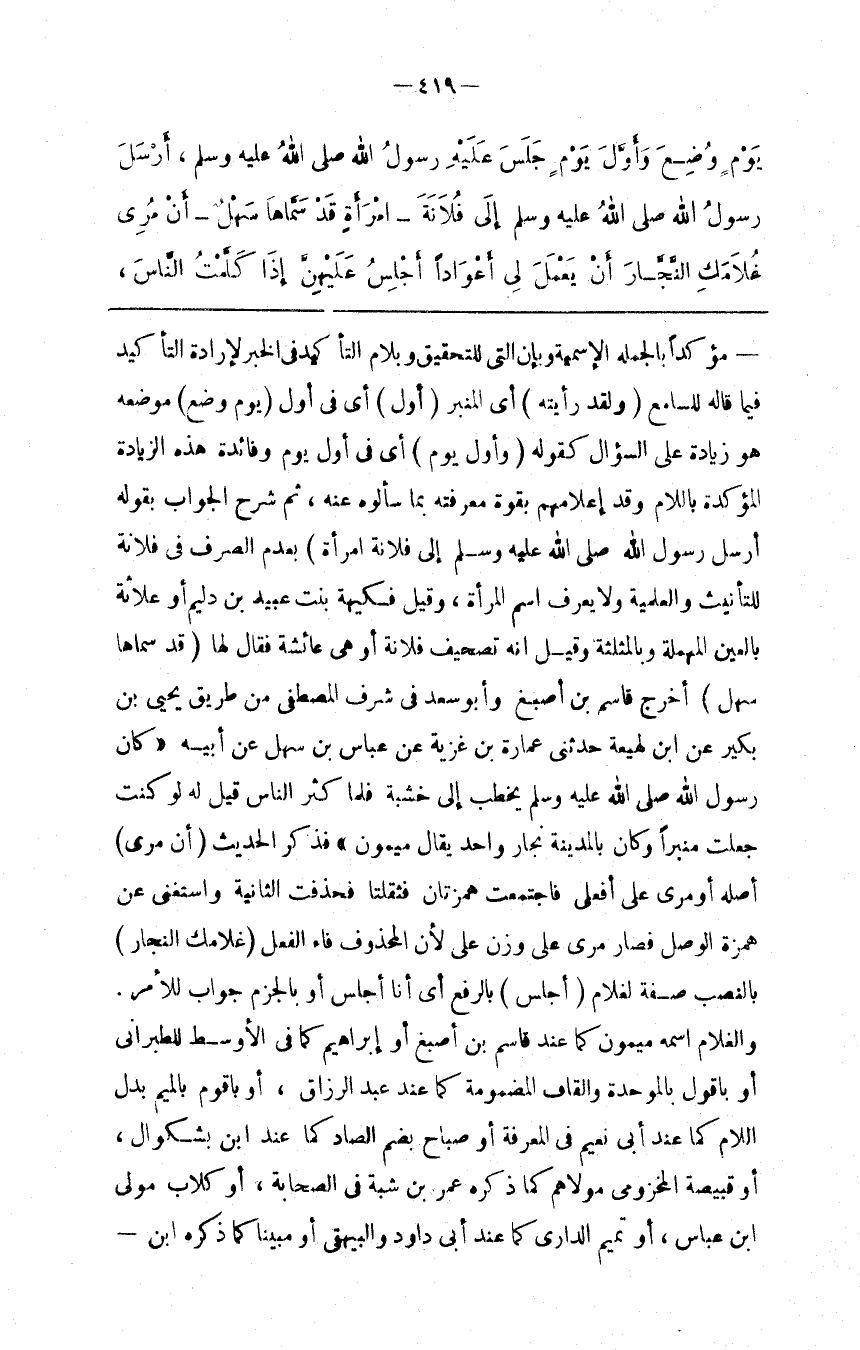 — ٤١٩ —
يَوْمٍ وُضِعَ وَأَوَّلَ يَوْمٍ جَلَسَ عَلَيْهِ رسولُ الله صلى اللهُ عليه وسلم ، أَرْسَلَ
رسولُ الله صلى اللهُ عليه وسلم إِلَى فُلَانَةَ ـ امْرَأَةٍ قَدْ سَمَّاهَا سَهْلٌ ـ أَنْ مُرِى
غُلَامَكِ النَّجَّارَ أَنْ يَعْمَلَ لِى أَعْوَاداً أَجْلِسُ عَلَيْهِنَّ إِذَا كَلَّمْتُ النَّاسَ ،
— مؤكداً بالجمله الإسمية وبإن التى للتحقيق وبلام التأكيد فى الخبر لإرادة التأكيد
فيما قاله للسامع ( ولقد رأيته ) أى المنبر ( أول ) أى فى أول (يوم وضع) موضعه
هو زيادة على السؤال كقوله ( وأول يوم ) أى فى أول يوم وفائدة هذه الزيادة
المؤكدة باللام وقد إعلامهم بقوة معرفته بما سألوه عنه ، ثم شرح الجواب بقوله
أرسل رسول الله صلى الله عليه وسلم إلى فلانة امرأة ) بعدم الصرف فى فلانة
للتأنيث والعلمية ولا يعرف اسم المرأة ، وقيل فكيهة بنت عبيد بن دليم أو علاثة
بالعين المهملة وبالمثلثة وقيل انه تصحيف فلانة أو هى عائشة فقال لها ( قد سماها
سهل ) أخرج قاسم بن أصبغ وأبوسعد فى شرف المصطفى من طريق يحيى بن
بكير عن ابن لهيعة حدثنى عمارة بن غزية عن عباس بن سهل عن أبيه « كان
رسول الله صلى الله عليه وسلم يخطب إلى خشبة فلما كثر الناس قيل له لو كنت
جعلت منبراً وكان بالمدينة نجار واحد يقال ميمون » فذكر الحديث ( أن مرى)
أصله أومرى على أفعلى فاجتمعت همزتان فثقلتا فحذفت الثانية واستغنى عن
همزة الوصل فصار مرى على وزن على لأن المحذوف فاء الفعل (غلامك النجار )
بالنصب صفة لغلام ( أجلس ) بالرفع أى أنا أجلس أو بالجزم جواب للأمر .
والغلام اسمه ميمون كما عند قاسم بن أصبغ أو إبراهيم كما فى الأوسط للطبرانى
أو باقول بالموحدة والقاف المضمومة كما عند عبد الرزاق ، أو باقوم بالميم بدل
اللام كما عند أبى نعيم فى المعرفة أو صباح بضم الصاد كما عند ابن بشكوال ،
أو قبيصة المخزومى مولاهم كما ذكره عمر بن شبة فى الصحابة ، أو كلاب مولى
ابن عباس ، أو تميم الدارى كما عند أبى داود والبيهقى أو مبينا كما ذكره ابن —